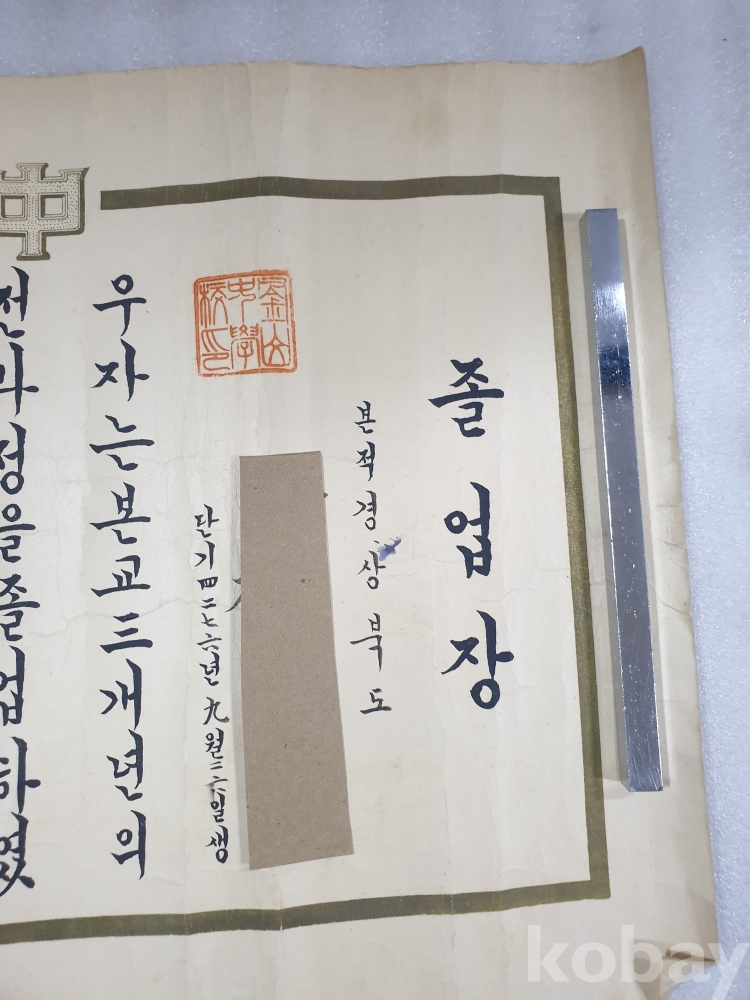 졸업장
본적경상북도
단기四二七六년九월二六일생
釜山
中學
校印
우자는본교三개년의
전과정을졸업하였
中
kobay